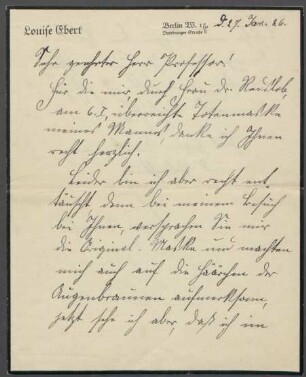 Louise Ebert
Berlin W. 15,
d. 27. Jan. 26.
Sehr geehrter Herr Professor!
Für die mir, durch Frau Dr. Redslob,
am 6. I. überreichte Totenmaske
meines Mannes, danke ich Ihnen
recht herzlich.
Leider bin ich aber recht ent-
täuscht denn bei meinem Besuch
bei Ihnen, versprachen Sie mir
die Original-Maske und machten
mich auch auf die Häärchen der
Augenbraunen aufmerksam,
jetzt sehe ich aber, daß ich im